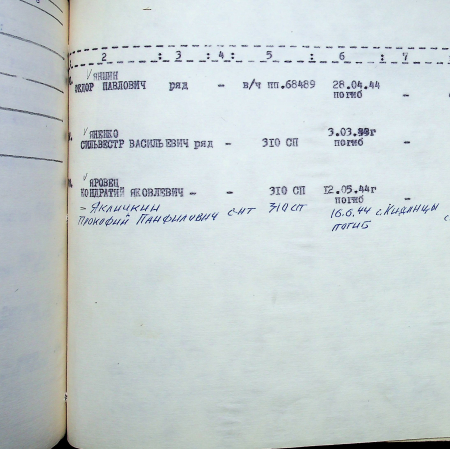 2 : 3 : 4 : 5 : 6 : 7
ЯНШИН
ФЕДОР ПАВЛОВИЧ ряд - в/ч пп.68489 28.04.44
погиб -
ЯНЕНКО 3.03.44г
СИЛЬВЕСТР ВАСИЛЬЕВИЧ ряд - 310 СП погиб -
ЯРОВЕЦ
КОНДРАТИЙ ЯКОВЛЕВИЧ - - 310 СП 12.05.44г
погиб -
- ЯКЛИЧКИН
ПРОКОФИЙ ПАНФИЛОВИЧ с-нт 310 сп 16.6.44 с. Киданцы
погиб